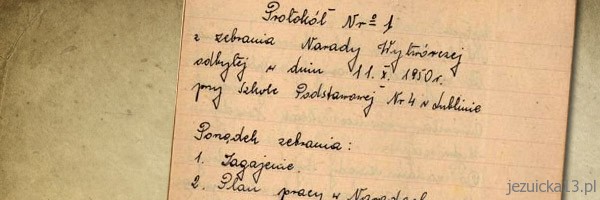 Protokół Nr º 1
z zebrania Narady Wytwórczej
odbytej w dniu 11.X.1950r.
przy Szkole Podstawowej Nr 4 w Lublinie
Porządek zebrania:
1. Zagajenie.
2. Plan pracy w Naradach
jezuicka13.pl